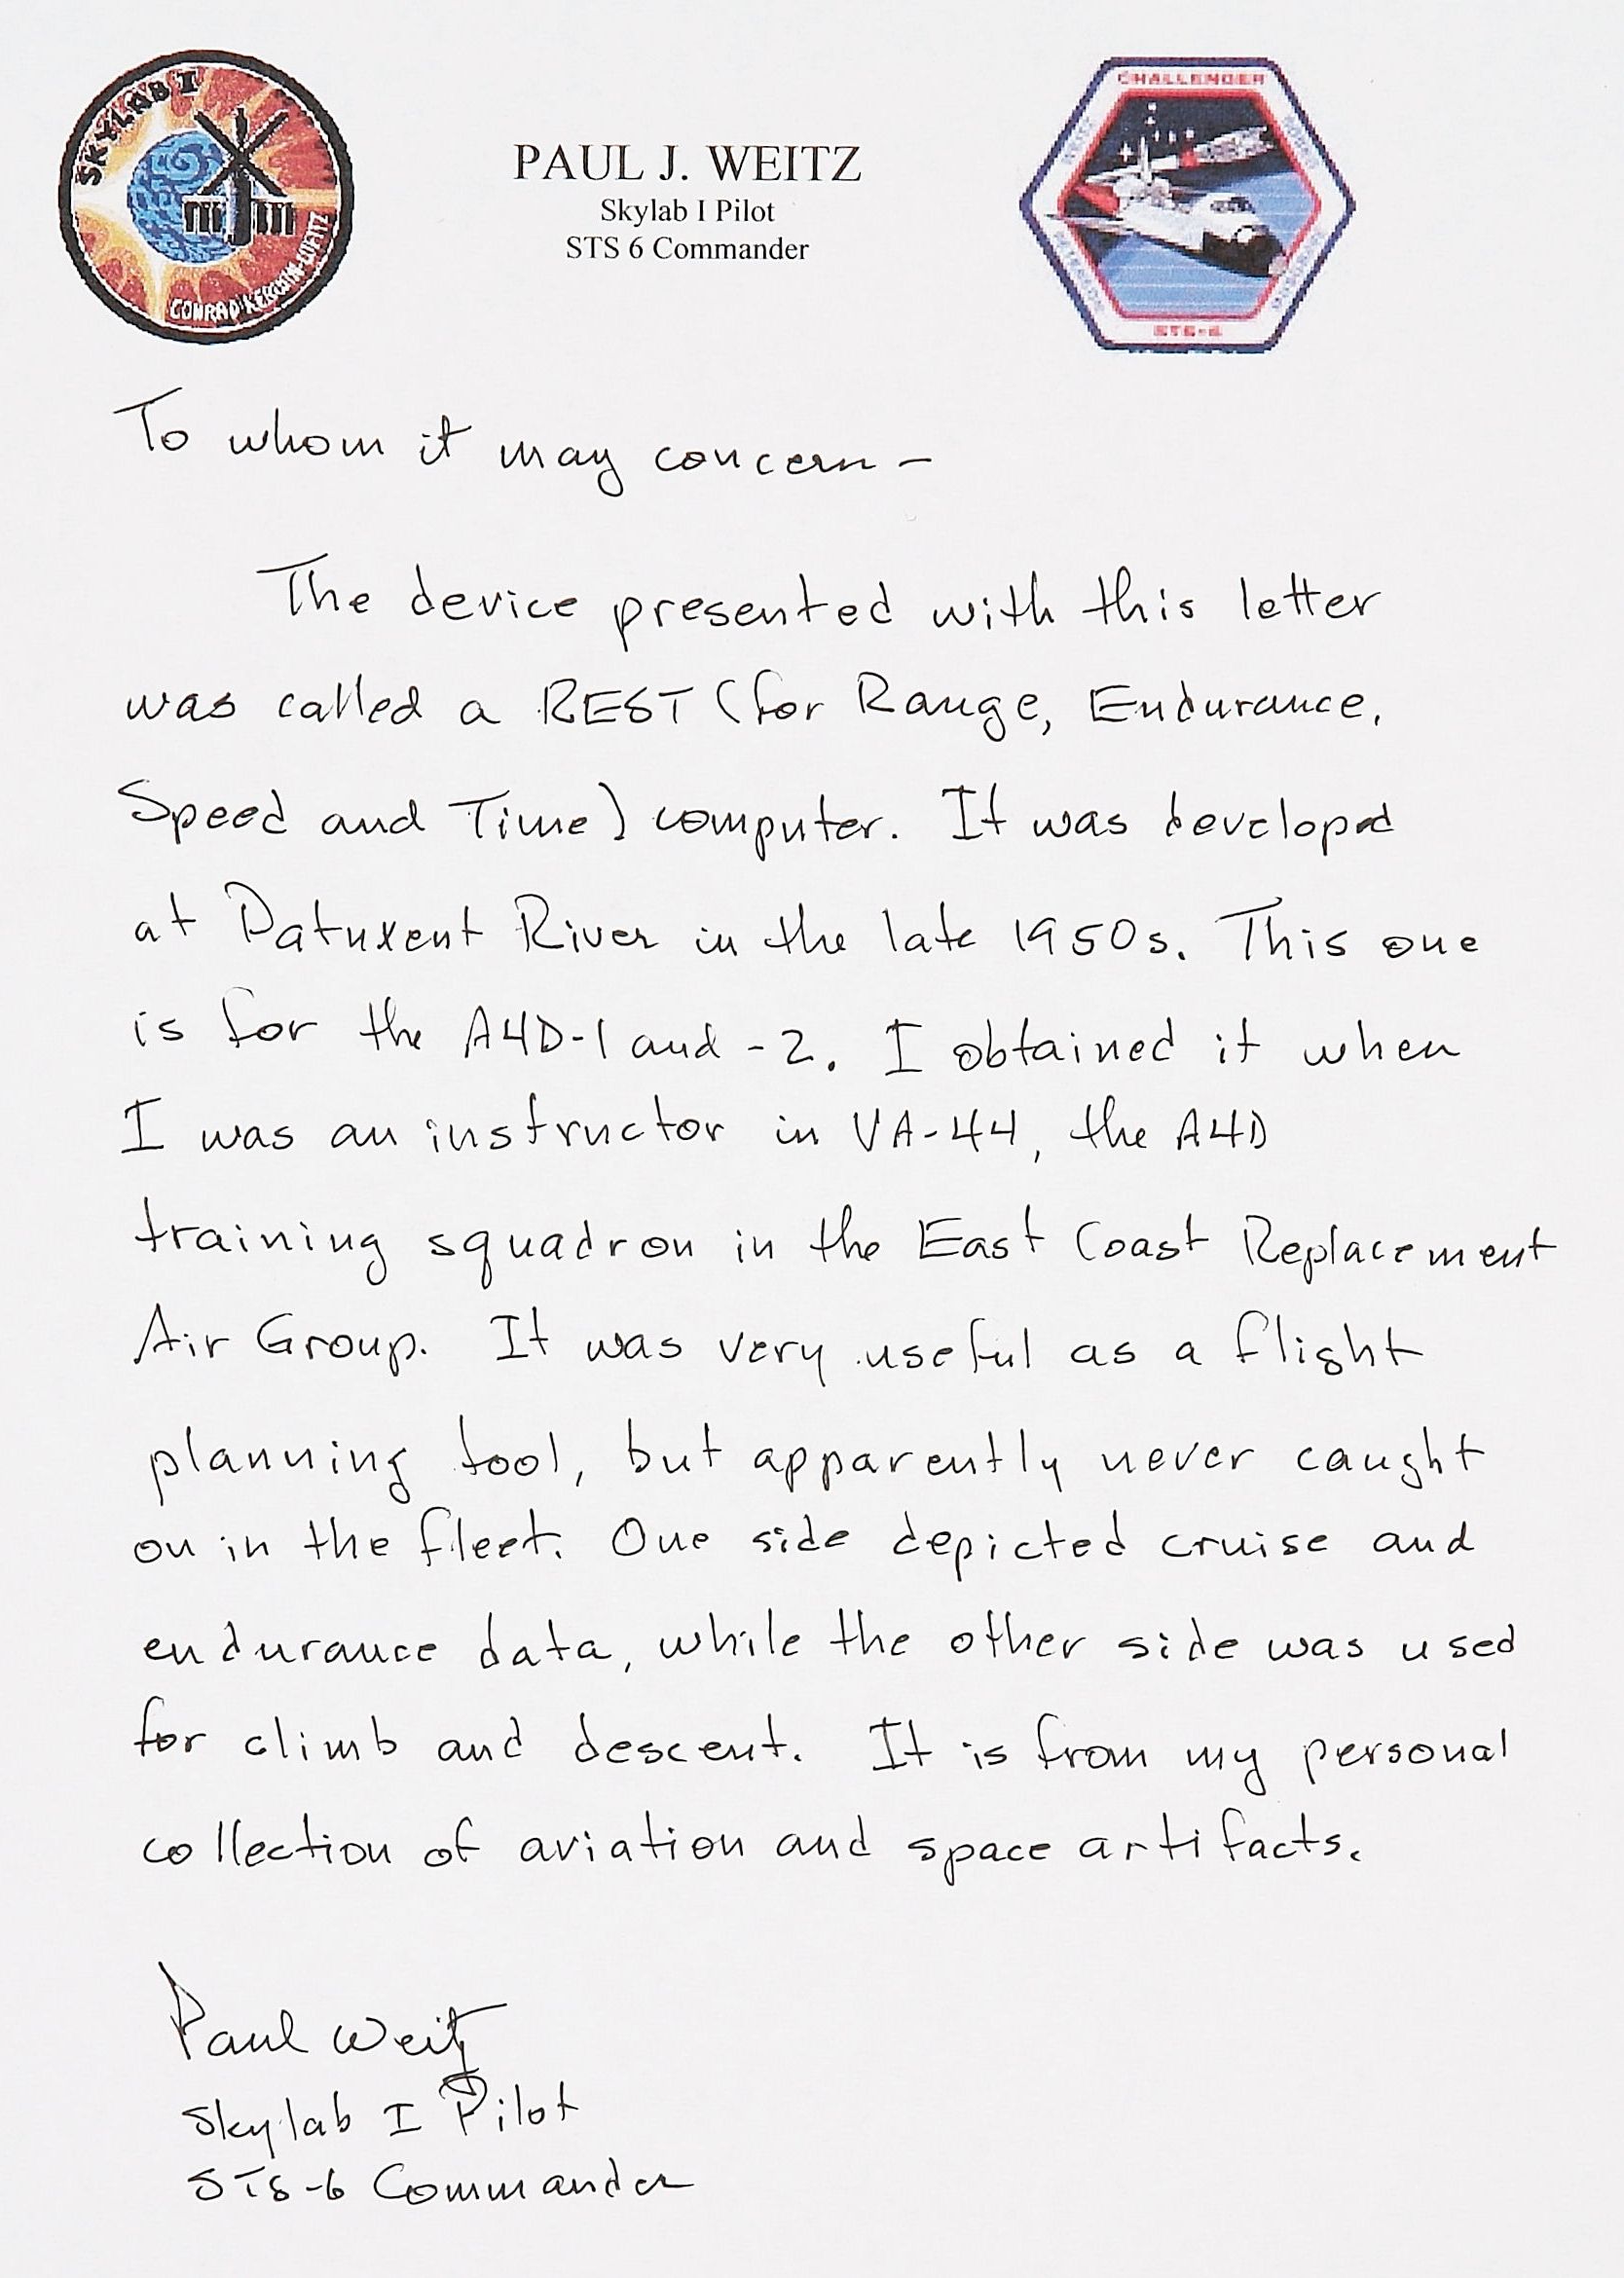 SKYLAB I
CONRAD·KERWIN·WEITZ
PAUL J. WEITZ
Skylab I Pilot
STS 6 Commander
CHALLENGER
STS-6
To whom it may concern —
The device presented with this letter
was called a REST (for Range, Endurance,
Speed and Time) computer. It was developed
at Patuxent River in the late 1950s. This one
is for the A4D-1 and -2. I obtained it when
I was an instructor in VA-44, the A4D
training squadron in the East Coast Replacement
Air Group. It was very useful as a flight
planning tool, but apparently never caught
on in the fleet. One side depicted cruise and
endurance data, while the other side was used
for climb and descent. It is from my personal
collection of aviation and space artifacts.
Paul Weitz
Skylab I Pilot
STS-6 Commander